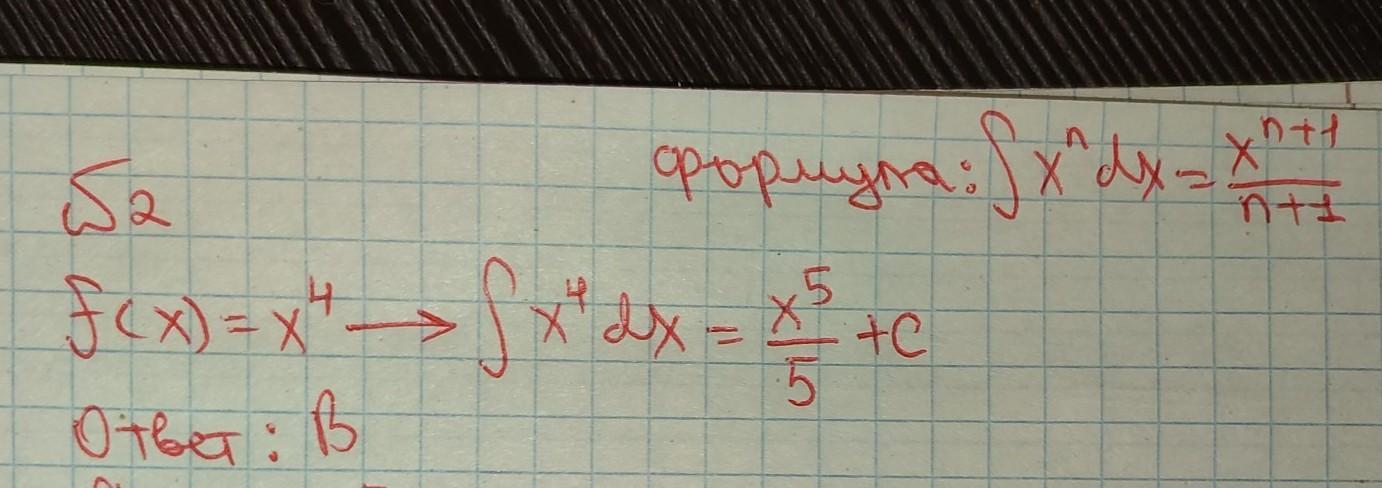 формула: ∫ xⁿ dx = xⁿ⁺¹/(n+1)
№2
f(x) = x⁴ → ∫ x⁴ dx = x⁵/5 + C
Ответ: В